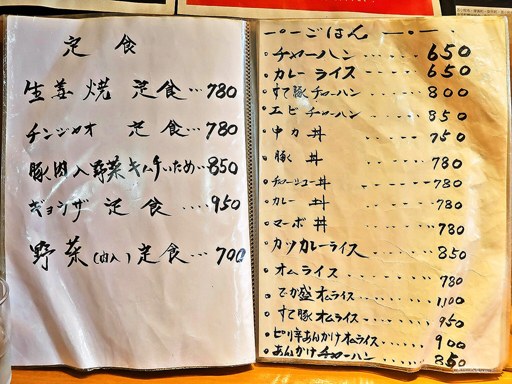 定食
生姜焼 定食…780
チンジャオ 定食…780
豚肉入野菜キムチいため…850
ギョウザ 定食…950
野菜(肉入)定食…700
ーごはんー
チャーハン…650
カレーライス…650
すて豚チャーハン…800
エビチャーハン…850
中カ丼…750
豚丼…780
チャーシュー丼…780
カレー丼…780
マーボ丼…780
カツカレーライス…850
オムライス…780
でか盛オムライス…1,100
すて豚オムライス…950
ピリ辛あんかけオムライス…900
あんかけチャーハン…850